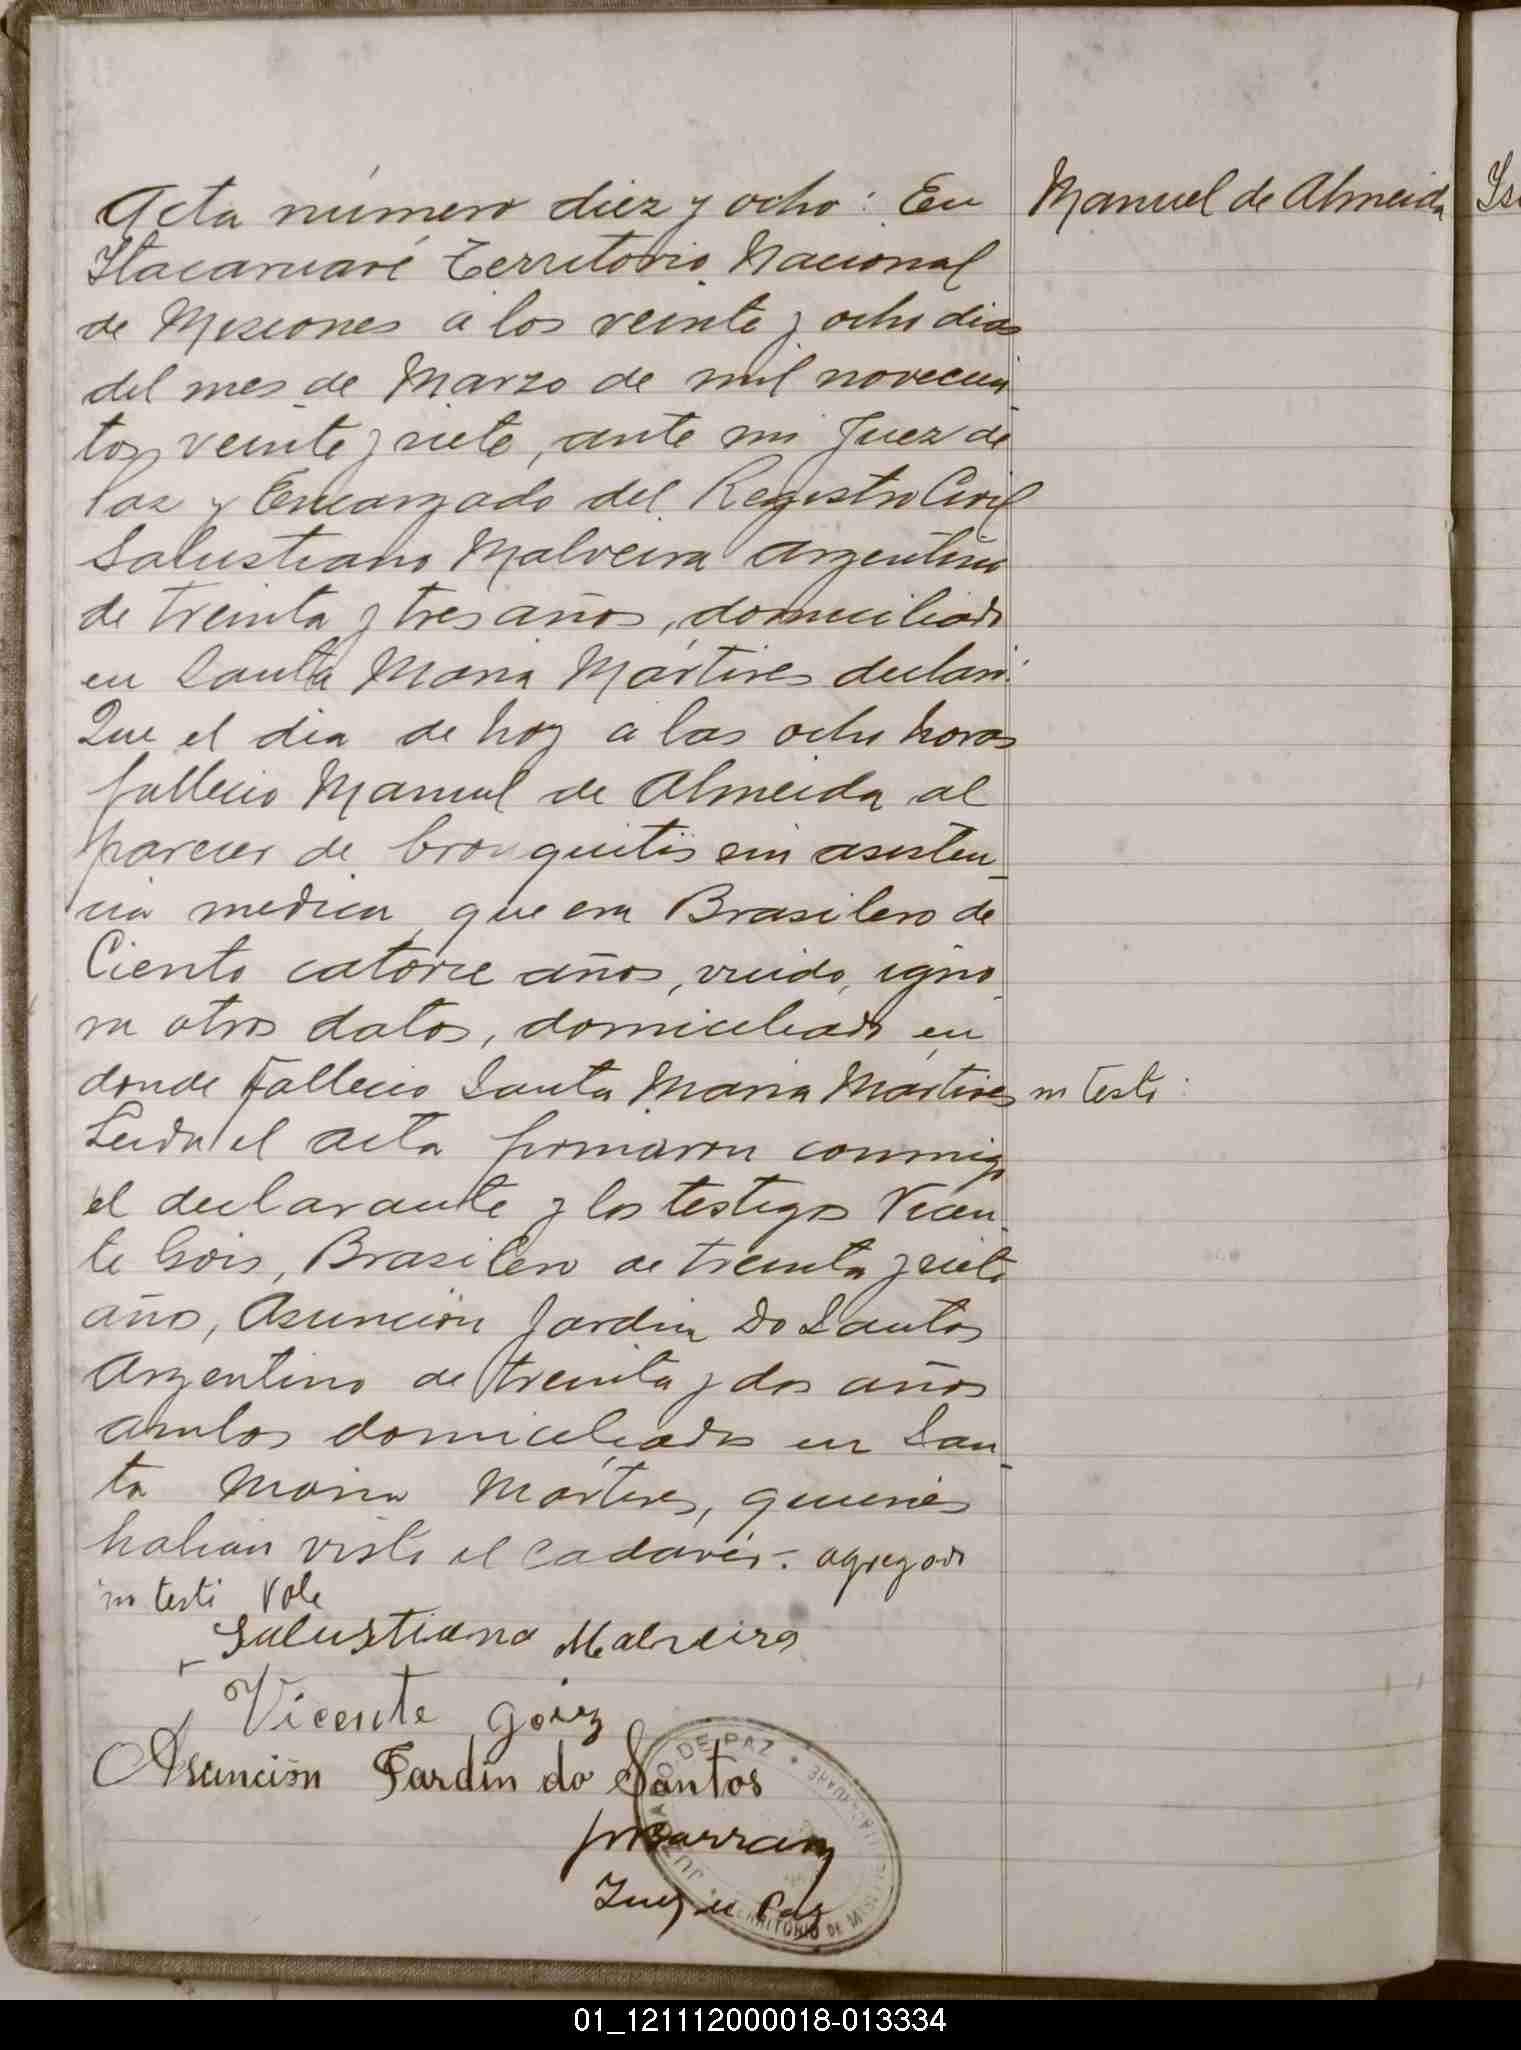 Acta número diez y ocho: En
Manuel de Almeida
Itacaruaré Territorio Nacional
de Misiones a los veinte y ocho dias
del mes de Marzo de mil novecien-
tos veinte y siete, ante mi Juez de
Paz y Encargado del Registro Civil
Salustiano Malveira argentino
de treinta y tres años, domiciliado
en Santa Maria Mártires declaró:
Que el dia de hoy a las ocho horas
fallecio Manuel de Almeida al
parecer de bronquitis sin asisten-
cia medica, que era Brasilero de
Ciento catorce años, viudo, igno-
ra otros datos, domiciliado en
donde fallecio Santa Maria Mártires
no testó
Leida el acta firmaron conmigo
el declarante y los testigos Vicen-
te Gois, Brasilero de treinta y siete
años, Asunción Jardin Do Santos
Argentino de treinta y dos años
ambos domiciliados en San-
ta Maria Mártires, quienes
habian visto el cadaver.- agregado
no testó Vale
Salustiano Malveira
Vicente Goiz
Asunción Jardin do Santos
Barran
Juez de Paz
JUZGADO DE PAZ
ITACARUARE
TERRITORIO DE MISIONES
01_121112000018-013334